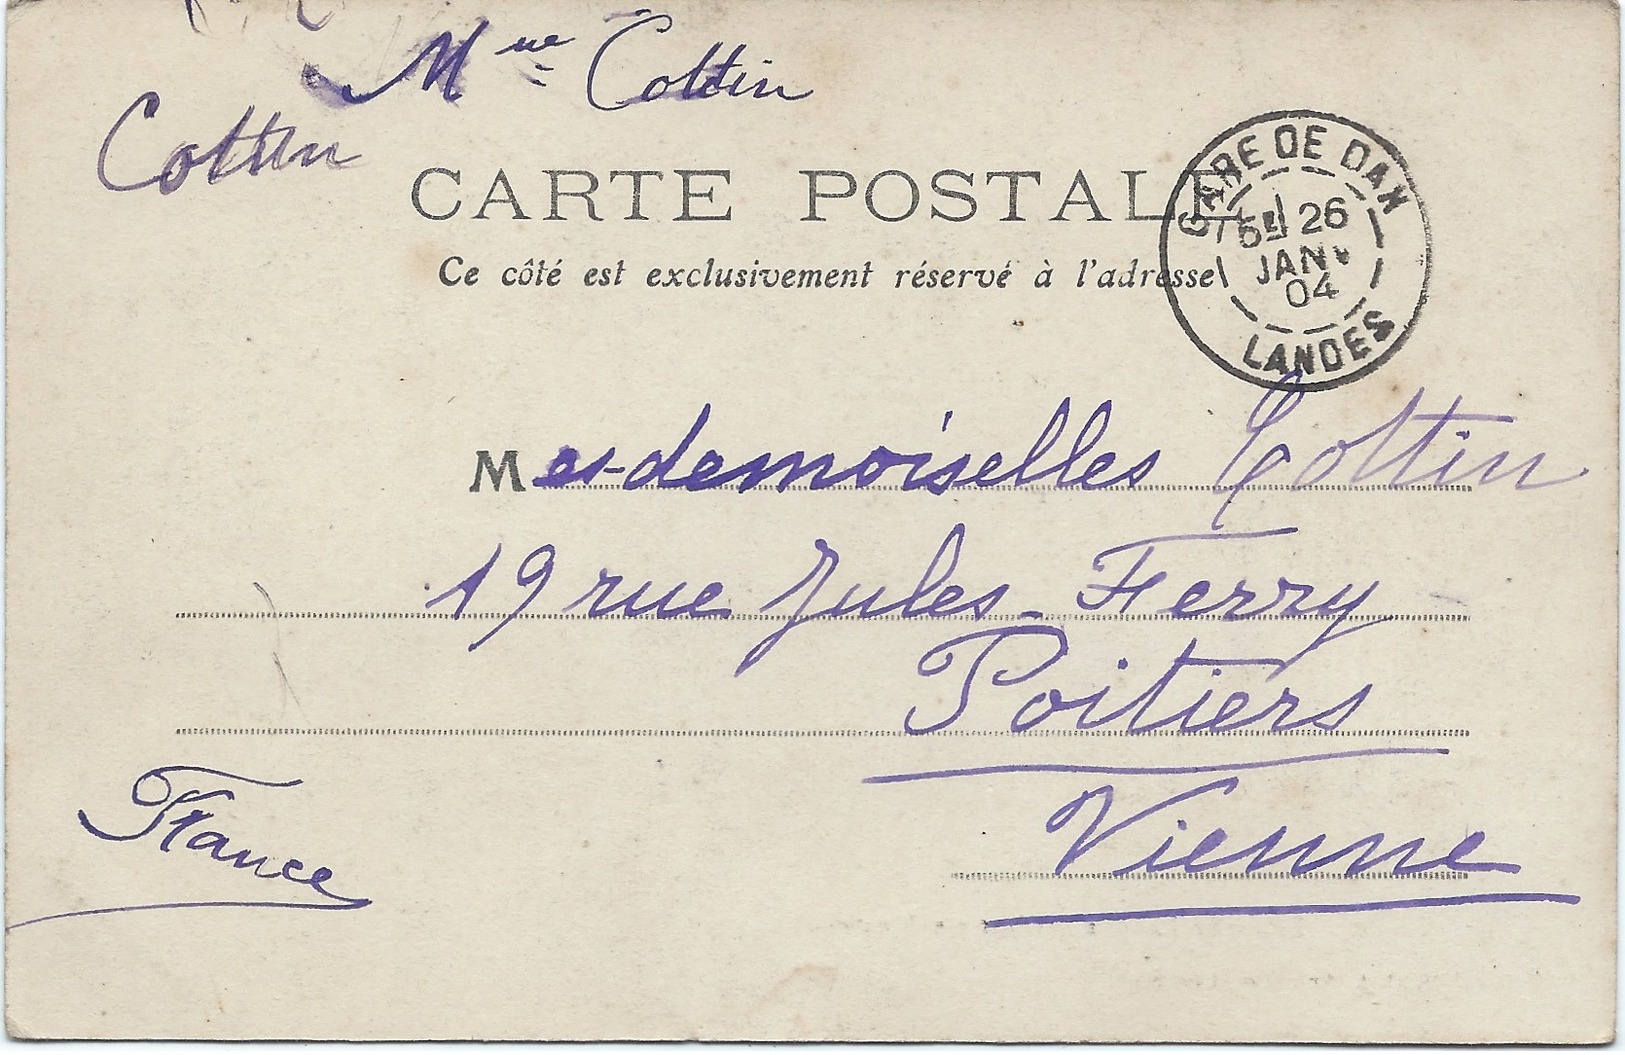 Mme Cottin
Cottin
CARTE POSTALE
Ce côté est exclusivement réservé à l'adresse
GARE DE DAX
26
JANV
04
LANDES
Mesdemoiselles Cottin
19 rue Jules-Ferry
Poitiers
Vienne
France